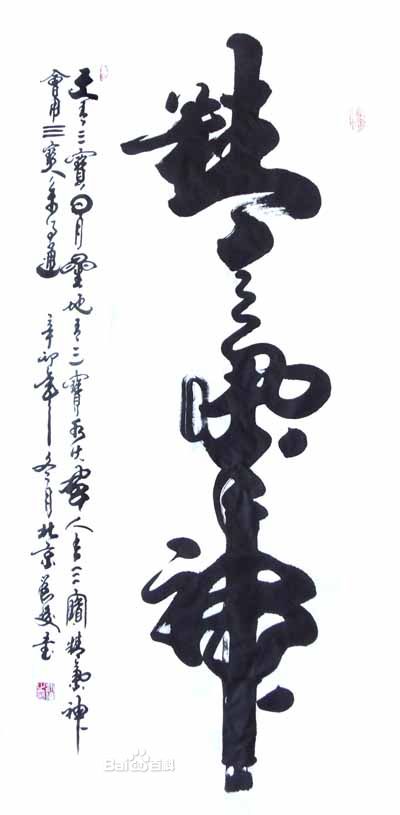 精氣神
天有三寶日月星地有三寶水火風人有三寶精氣神
會用三寶通辛卯年冬月北京書
Bai百科